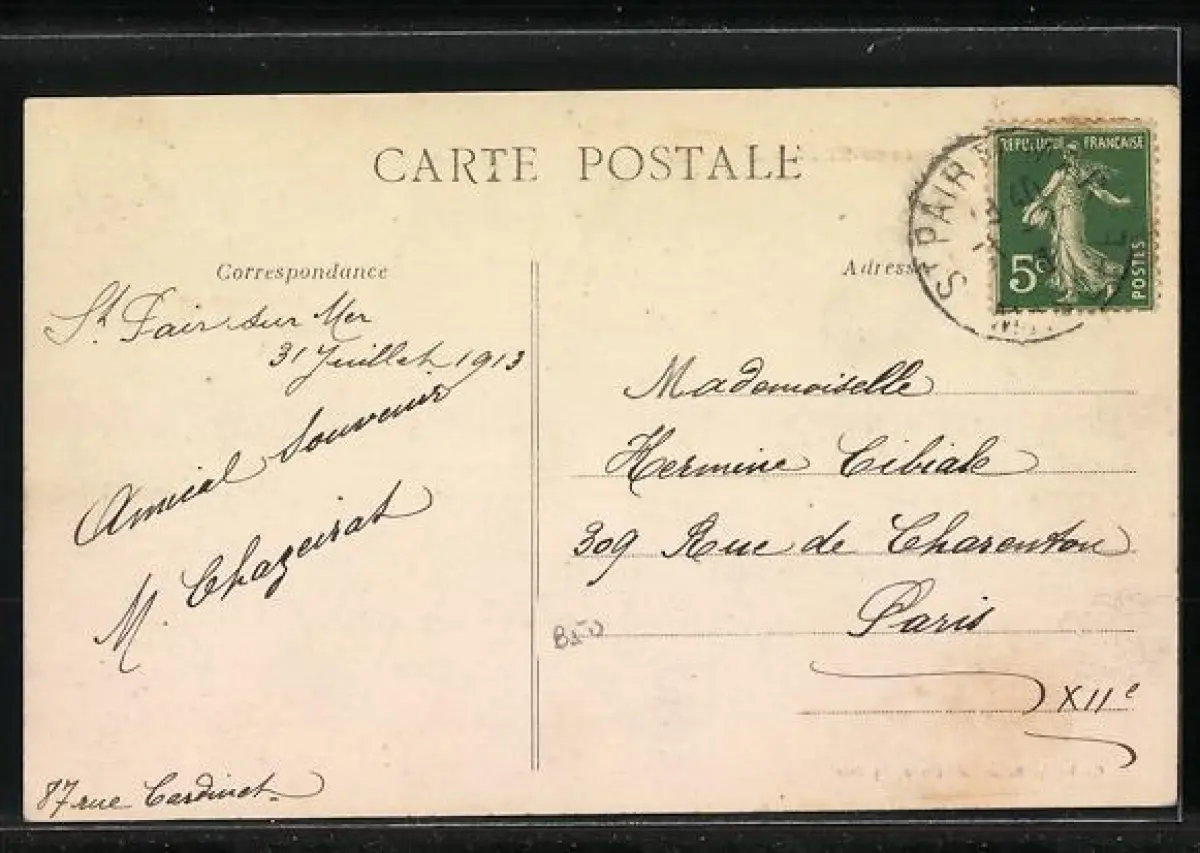 CARTE POSTALE
Correspondance
St. Pair sur Mer
31 Juillet 1913
Amical Souvenir
M. Chazeirat
87 rue Cardinet
Adresse
ST PAIR
REPUBLIQUE FRANÇAISE
5c
POSTES
Mademoiselle
Hermine Cibiale
309 Rue de Charenton
Paris
XIIe